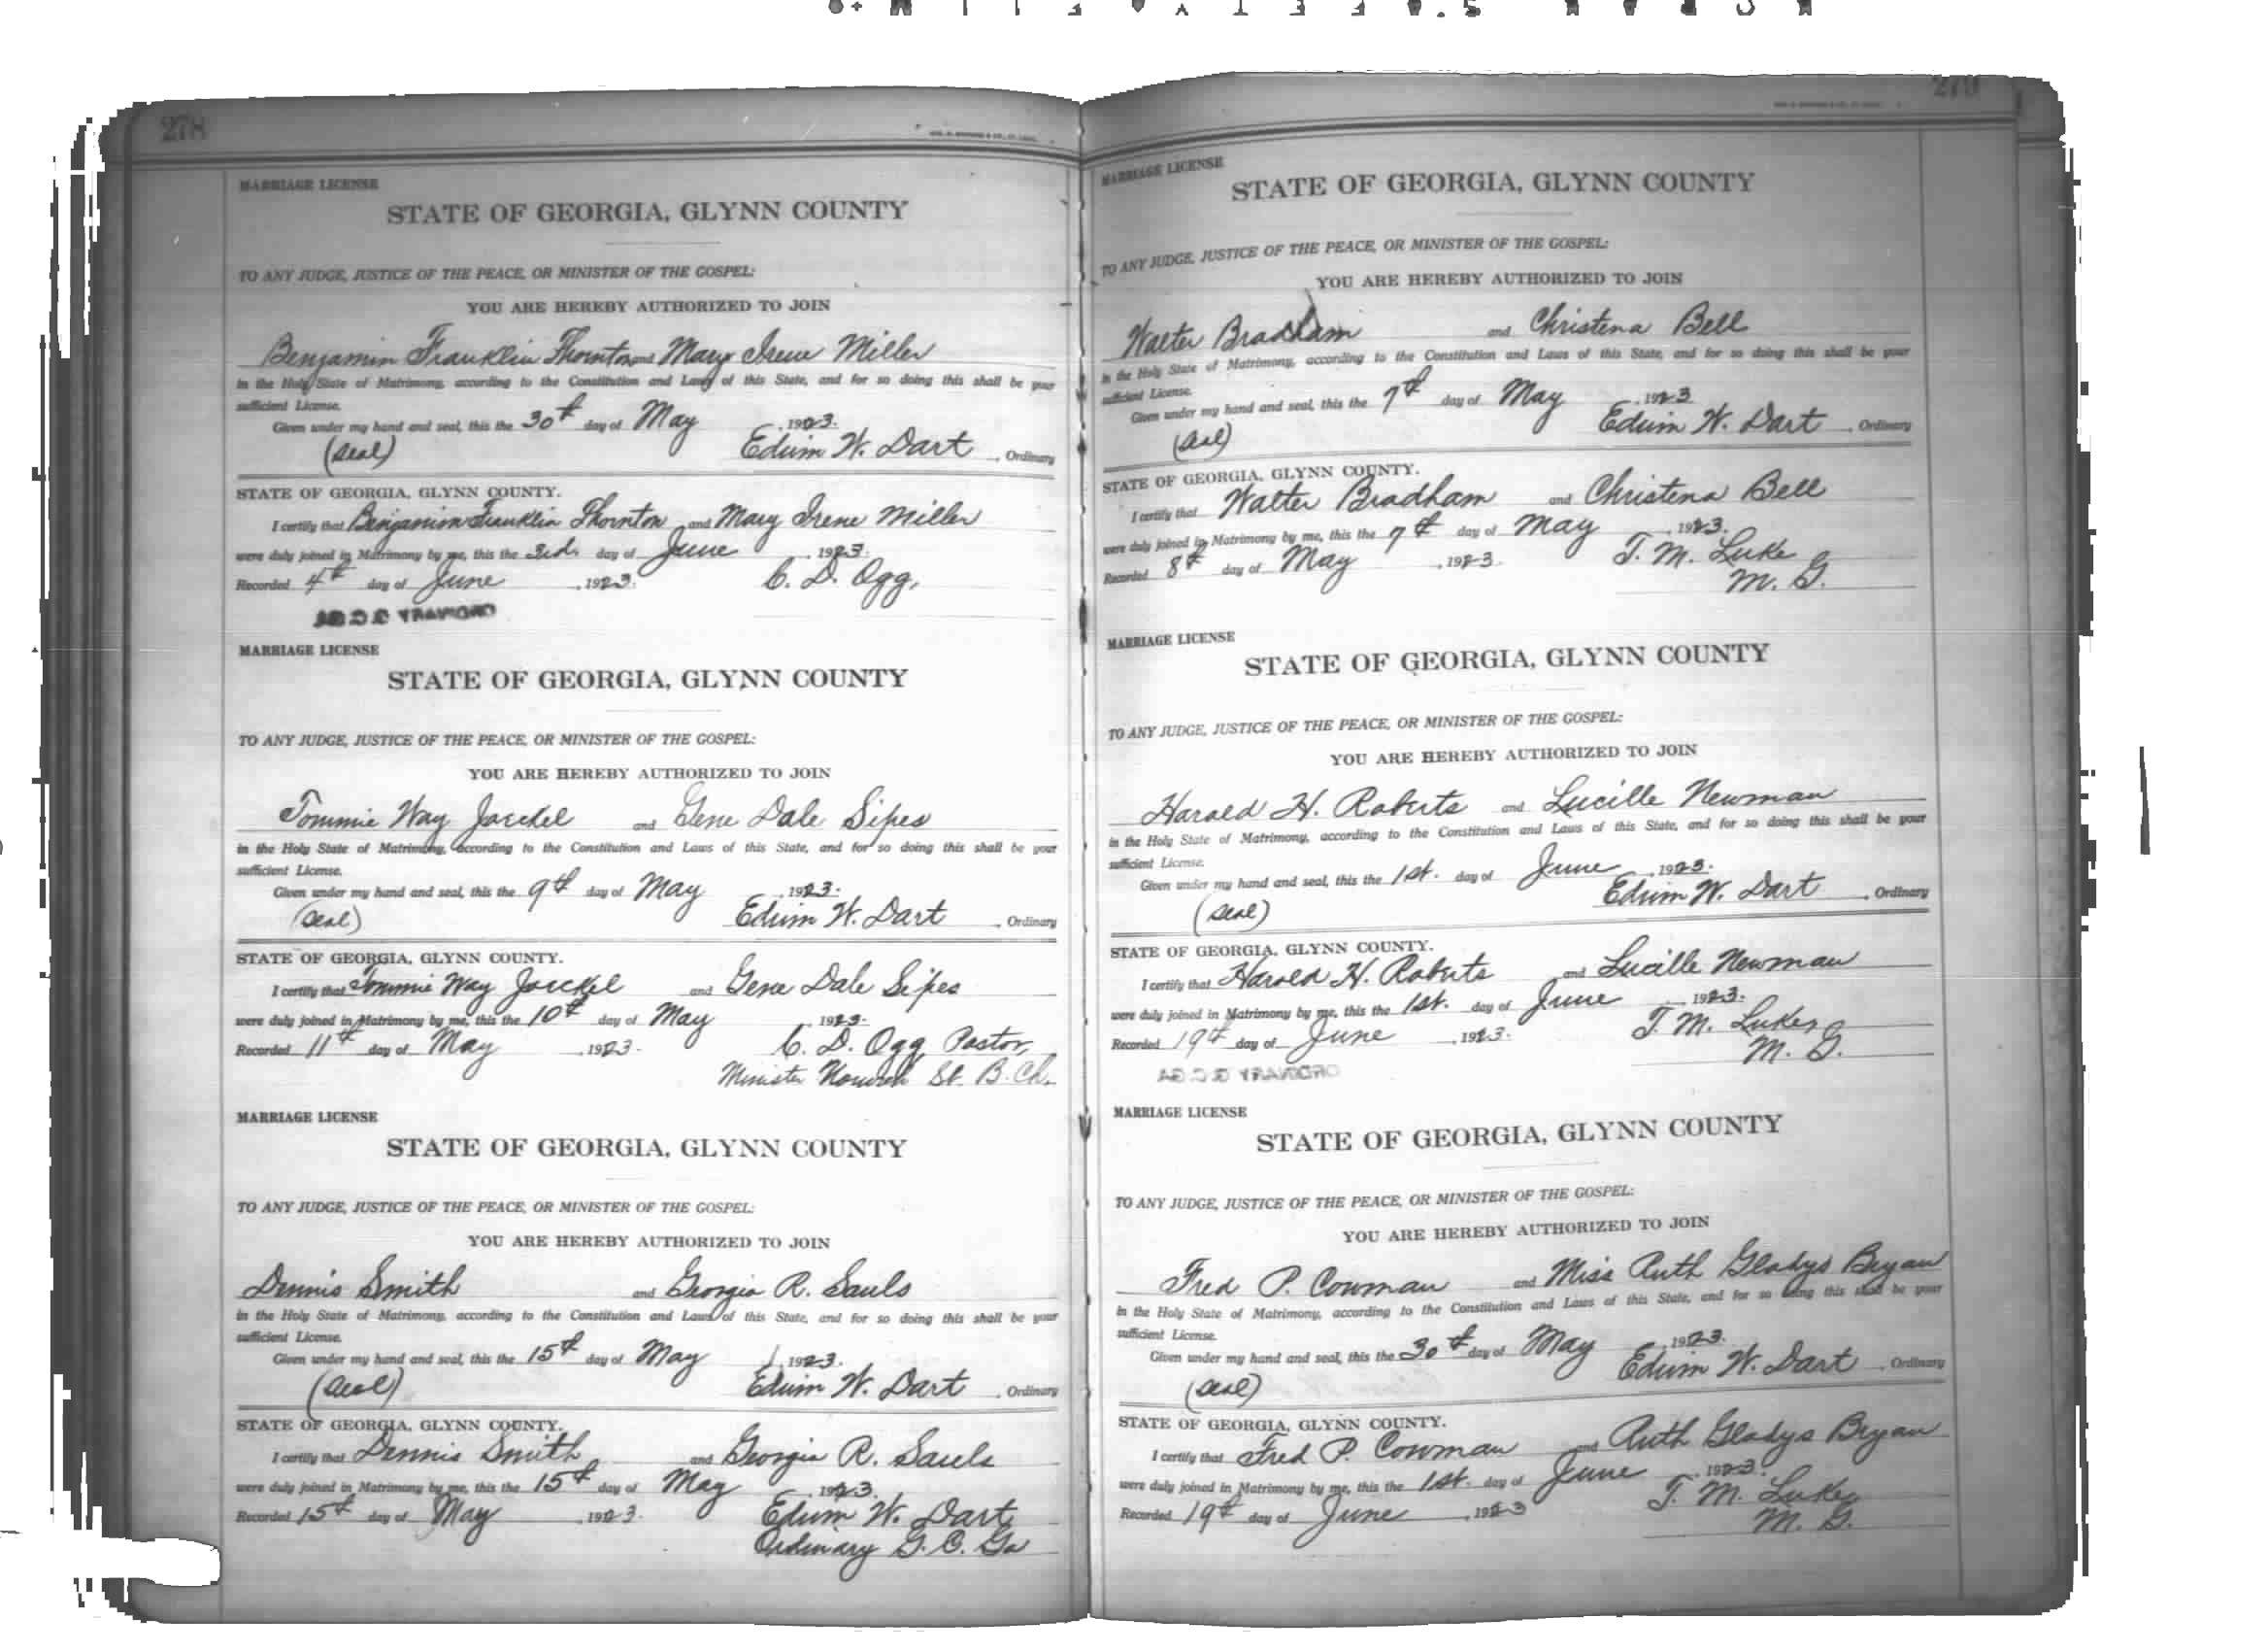 278
MARRIAGE LICENSE
STATE OF GEORGIA, GLYNN COUNTY
TO ANY JUDGE, JUSTICE OF THE PEACE, OR MINISTER OF THE GOSPEL:
YOU ARE HEREBY AUTHORIZED TO JOIN
Benjamin Franklin Thornton and Mary Irene Miller
in the Holy State of Matrimony, according to the Constitution and Laws of this State, and for so doing this shall be your
sufficient License.
Given under my hand and seal, this the 30th day of May, 1923.
(Seal) Edwin W. Dart, Ordinary
STATE OF GEORGIA, GLYNN COUNTY.
I certify that Benjamin Franklin Thornton and Mary Irene Miller
were duly joined in Matrimony by me, this the 3rd. day of June, 1923.
Recorded 4th day of June, 1923. C. D. Ogg,
MARRIAGE LICENSE
STATE OF GEORGIA, GLYNN COUNTY
TO ANY JUDGE, JUSTICE OF THE PEACE, OR MINISTER OF THE GOSPEL:
YOU ARE HEREBY AUTHORIZED TO JOIN
Tommie Way Jaeckel and Gene Dale Sipes
in the Holy State of Matrimony, according to the Constitution and Laws of this State, and for so doing this shall be your
sufficient License.
Given under my hand and seal, this the 9th day of May, 1923.
(Seal) Edwin W. Dart, Ordinary
STATE OF GEORGIA, GLYNN COUNTY.
I certify that Tommie Way Jaeckel and Gene Dale Sipes
were duly joined in Matrimony by me, this the 10th day of May, 1923.
Recorded 11th day of May, 1923. C. D. Ogg, Pastor,
Minister Norwich St. B. Ch.
MARRIAGE LICENSE
STATE OF GEORGIA, GLYNN COUNTY
TO ANY JUDGE, JUSTICE OF THE PEACE, OR MINISTER OF THE GOSPEL:
YOU ARE HEREBY AUTHORIZED TO JOIN
Dennis Smith and Georgia R. Sauls
in the Holy State of Matrimony, according to the Constitution and Laws of this State, and for so doing this shall be your
sufficient License.
Given under my hand and seal, this the 15th day of May, 1923.
(Seal) Edwin W. Dart, Ordinary
STATE OF GEORGIA, GLYNN COUNTY.
I certify that Dennis Smith and Georgia R. Sauls
were duly joined in Matrimony by me, this the 15th day of May, 1923.
Recorded 15th day of May, 1923. Edwin W. Dart
Ordinary G. C. Ga
279
MARRIAGE LICENSE
STATE OF GEORGIA, GLYNN COUNTY
TO ANY JUDGE, JUSTICE OF THE PEACE, OR MINISTER OF THE GOSPEL:
YOU ARE HEREBY AUTHORIZED TO JOIN
Walter Bradham and Christena Bell
in the Holy State of Matrimony, according to the Constitution and Laws of this State, and for so doing this shall be your
sufficient License.
Given under my hand and seal, this the 7th day of May, 1923
(Seal) Edwin W. Dart, Ordinary
STATE OF GEORGIA, GLYNN COUNTY.
I certify that Walter Bradham and Christena Bell
were duly joined in Matrimony by me, this the 7th day of May, 1923.
Recorded 8th day of May, 1923. T. M. Luke
M. G.
MARRIAGE LICENSE
STATE OF GEORGIA, GLYNN COUNTY
TO ANY JUDGE, JUSTICE OF THE PEACE, OR MINISTER OF THE GOSPEL:
YOU ARE HEREBY AUTHORIZED TO JOIN
Harold H. Roberts and Lucille Newman
in the Holy State of Matrimony, according to the Constitution and Laws of this State, and for so doing this shall be your
sufficient License.
Given under my hand and seal, this the 1st. day of June, 1923.
(Seal) Edwin W. Dart, Ordinary
STATE OF GEORGIA, GLYNN COUNTY.
I certify that Harold H. Roberts and Lucille Newman
were duly joined in Matrimony by me, this the 1st. day of June, 1923.
Recorded 19th day of June, 1923. T. M. Luke,
M. G.
MARRIAGE LICENSE
STATE OF GEORGIA, GLYNN COUNTY
TO ANY JUDGE, JUSTICE OF THE PEACE, OR MINISTER OF THE GOSPEL:
YOU ARE HEREBY AUTHORIZED TO JOIN
Fred P. Cowman and Miss Ruth Gladys Bryan
in the Holy State of Matrimony, according to the Constitution and Laws of this State, and for so doing this shall be your
sufficient License.
Given under my hand and seal, this the 30th day of May, 1923.
(Seal) Edwin W. Dart, Ordinary
STATE OF GEORGIA, GLYNN COUNTY.
I certify that Fred P. Cowman and Ruth Gladys Bryan
were duly joined in Matrimony by me, this the 1st. day of June, 1923.
Recorded 19th day of June, 1923 T. M. Luke,
M. G.